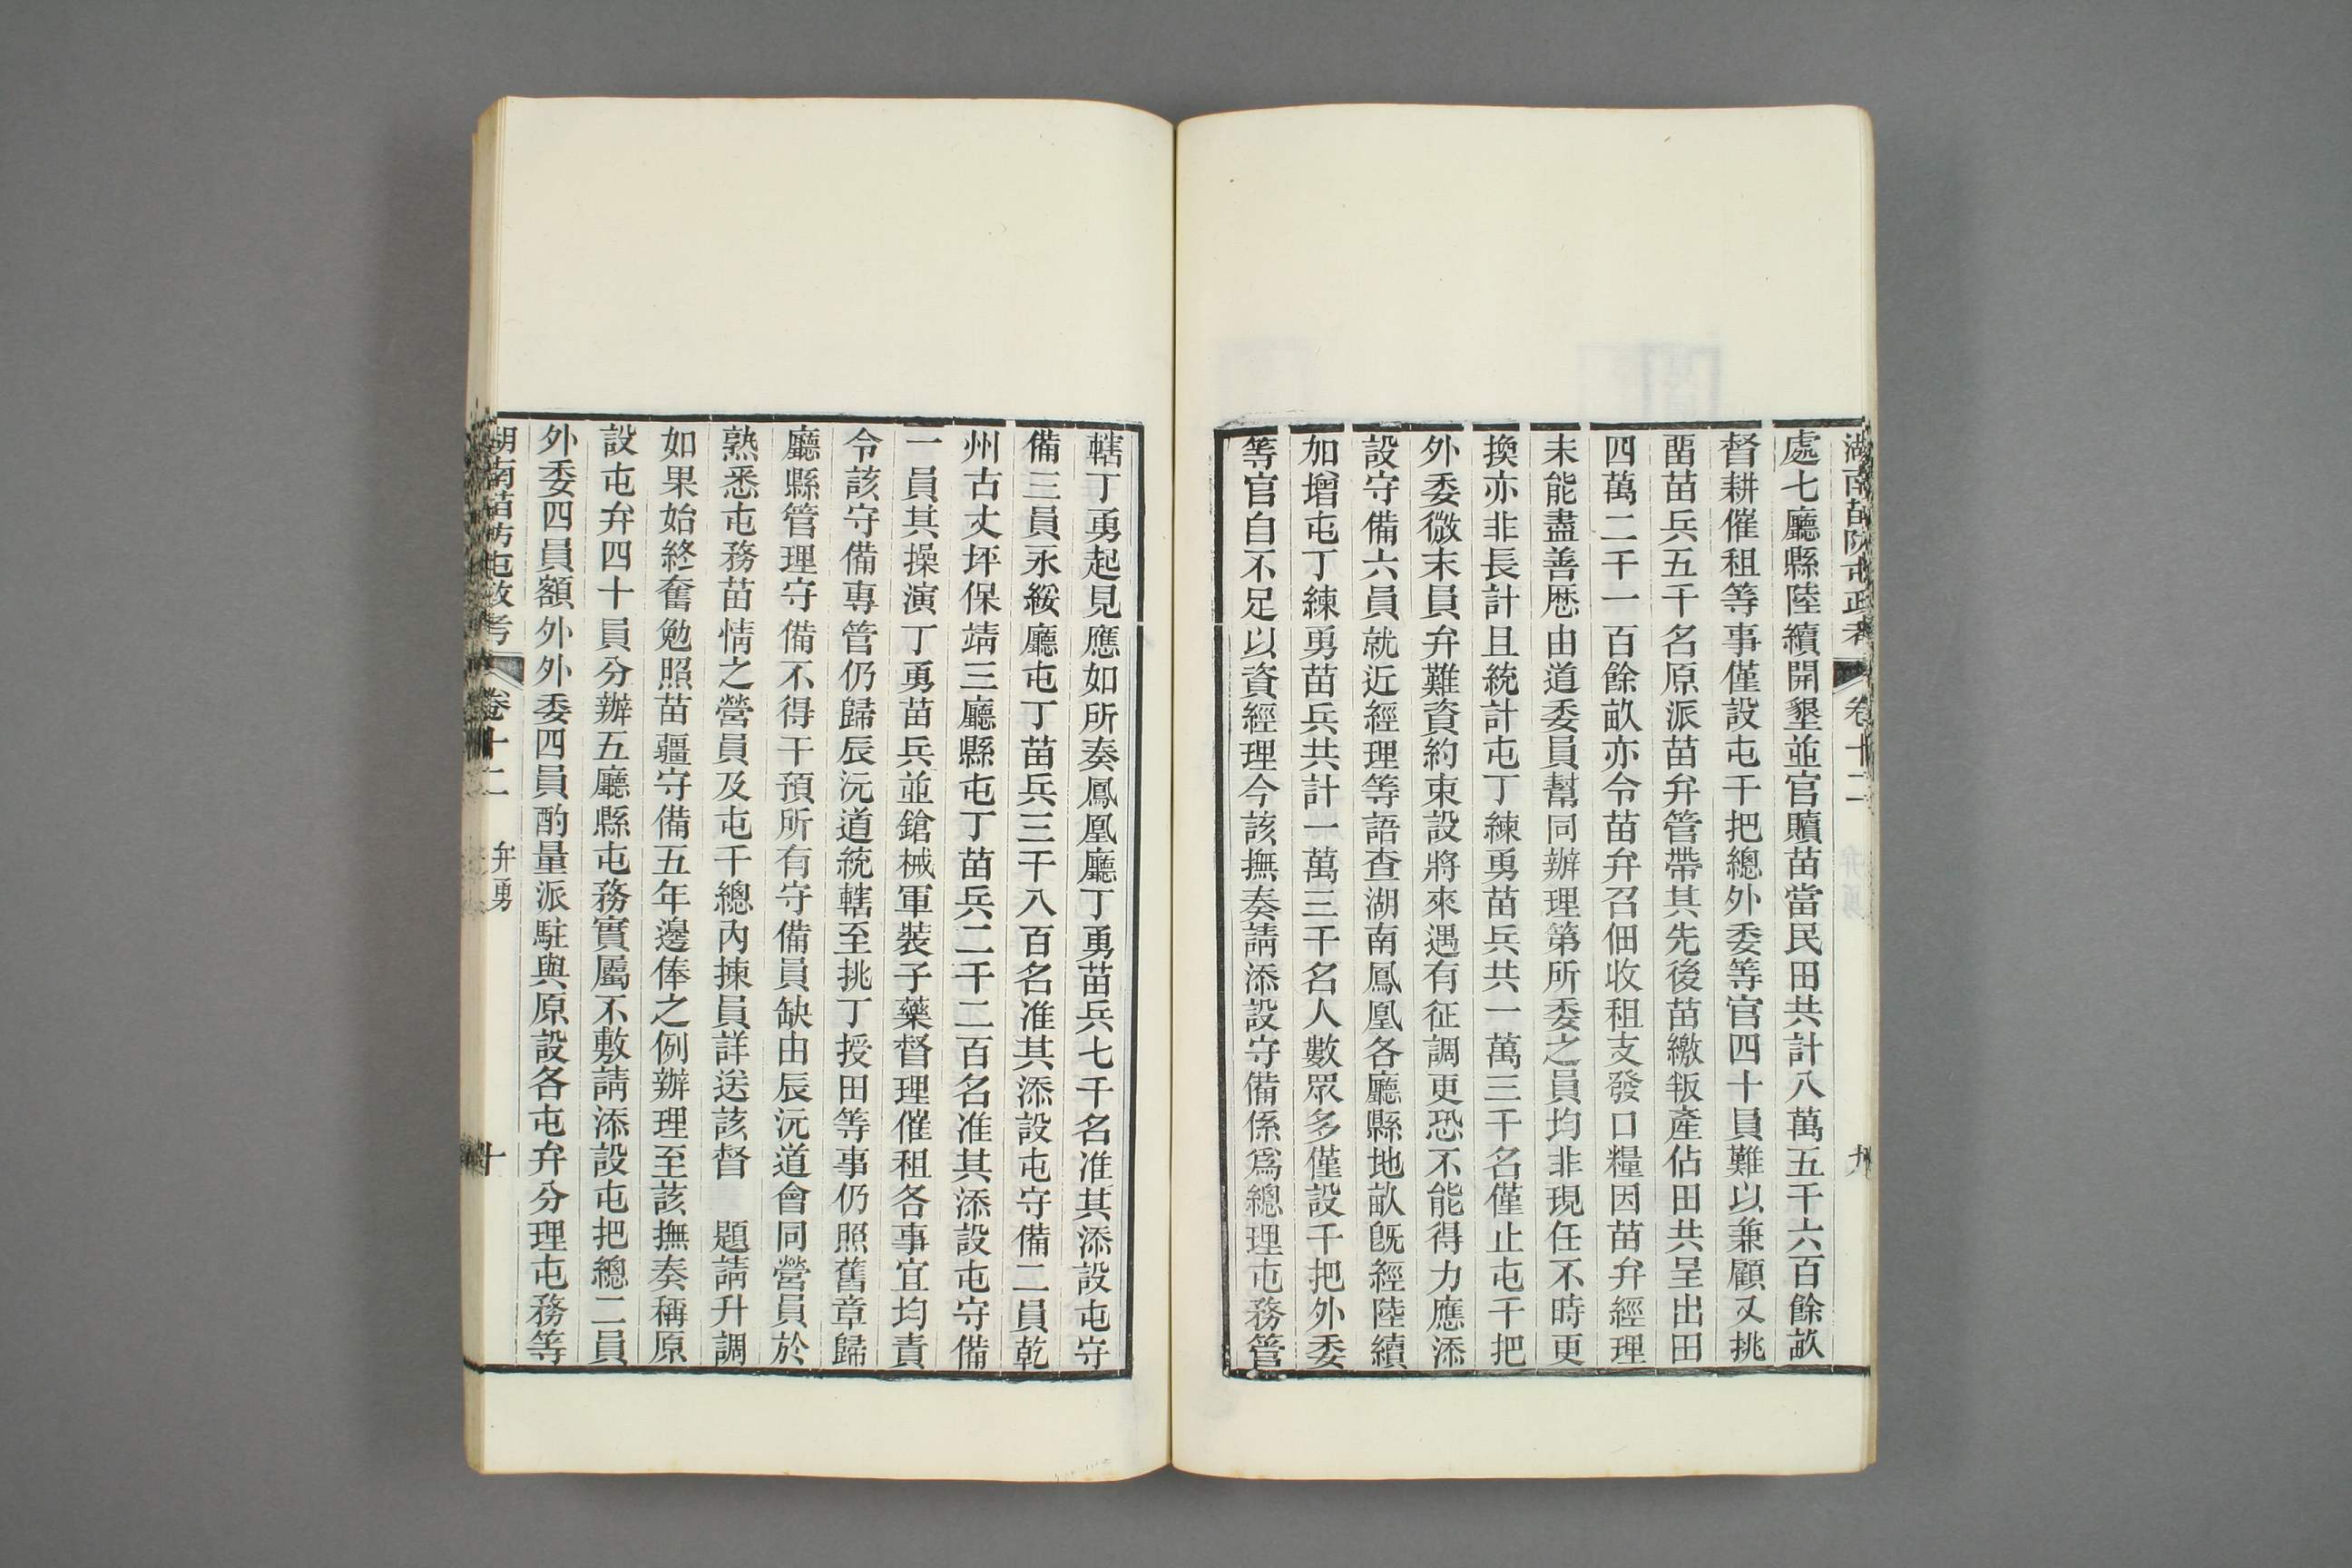 湖南苗防屯政考 卷十二 九
處七廳縣陸續開墾並官贖苗當民田共計八萬五千六百餘畝
督耕催租等事僅設屯千把總外委等官四十員難以兼顧又挑
畱苗兵五千名原派苗弁管帶其先後苗繳叛產佔田共呈出田
四萬二千一百餘畝亦令苗弁召佃收租支發口糧因苗弁經理
未能盡善厯由道委員幫同辦理第所委之員均非現任不時更
換亦非長計且統計屯丁練勇苗兵共一萬三千名僅止屯千把
外委微末員弁難資約束設將來遇有征調更恐不能得力應添
設守備六員就近經理等語查湖南鳳凰各廳縣地畝旣經陸續
加增屯丁練勇苗兵共計一萬三千名人數眾多僅設千把外委
等官自不足以資經理今該撫奏請添設守備係爲總理屯務管
轄丁勇起見應如所奏鳳凰廳丁勇苗兵七千名准其添設屯守
備三員永綏廳屯丁苗兵三千八百名准其添設屯守備二員乾
州古丈坪保靖三廳縣屯丁苗兵二千二百名准其添設屯守備
一員其操演丁勇苗兵並鎗械軍裝子藥督理催租各事宜均責
令該守備專管仍歸辰沅道統轄至挑丁授田等事仍照舊章歸
廳縣管理守備不得干預所有守備員缺由辰沅道會同營員於
熟悉屯務苗情之營員及屯千總內揀員詳送該督 題請升調
如果始終奮勉照苗疆守備五年邊俸之例辦理至該撫奏稱原
設屯弁四十員分辦五廳縣屯務實屬不敷請添設屯把總二員
外委四員額外外委四員酌量派駐與原設各屯弁分理屯務等
湖南苗防屯政考 卷十二 弁勇 十